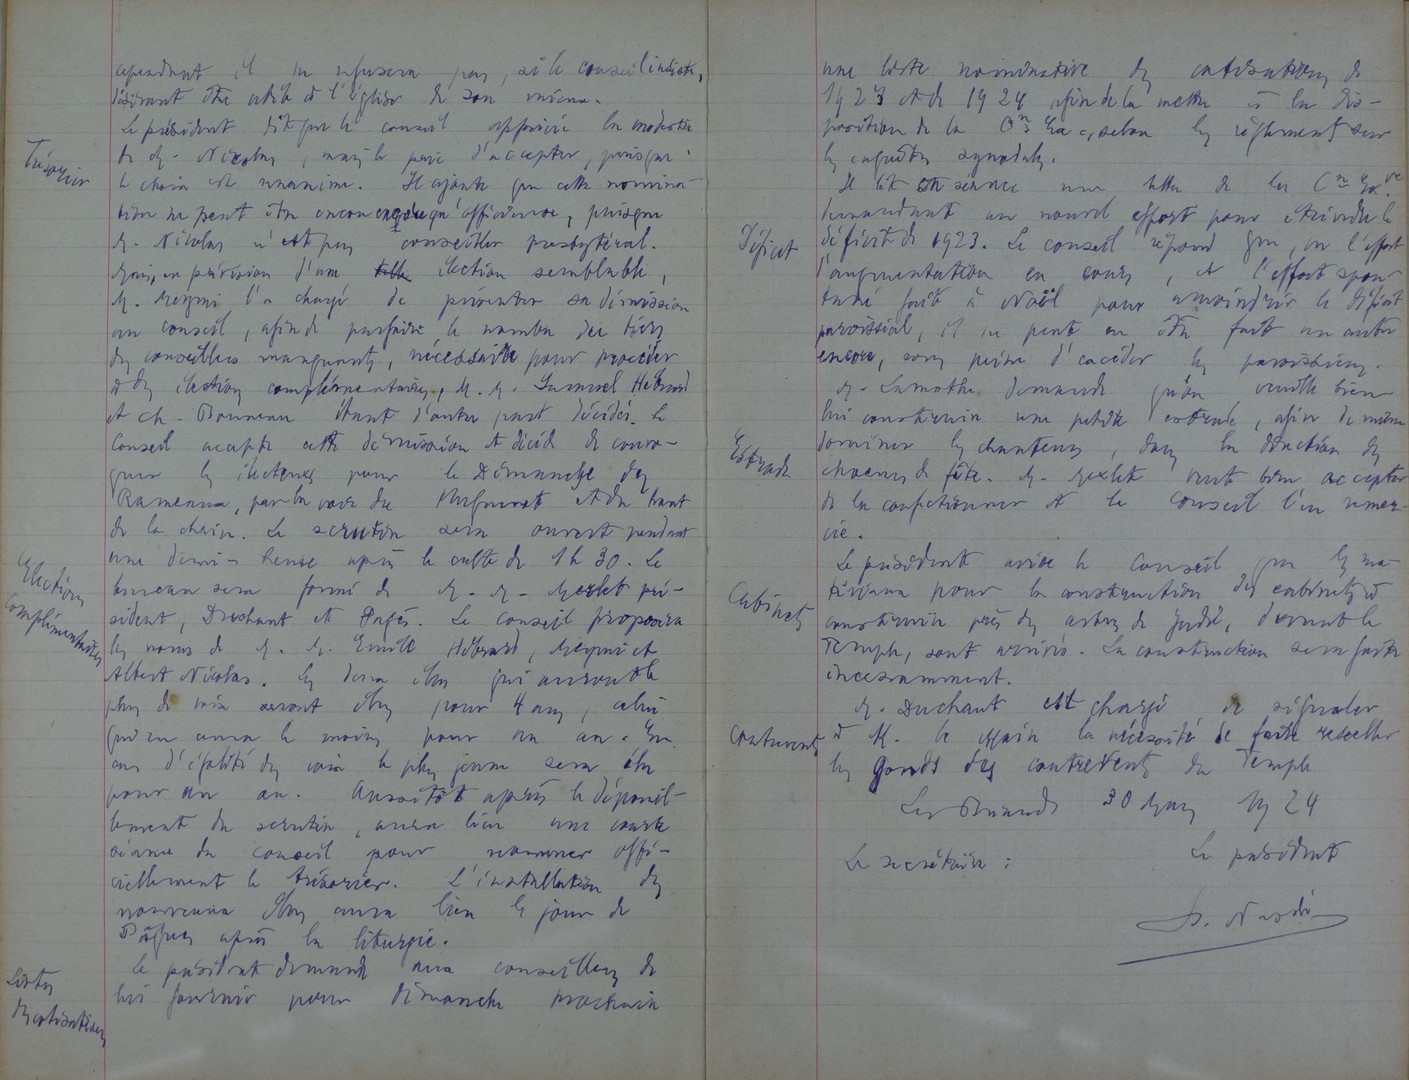 cependant il ne refusera pas, si le conseil insiste,
désirant être utile à l'église de son mieux.
Trésorier
Le président dit que le conseil apprécie la modestie
de M. Nicolas, mais le prie d'accepter, puisque
le choix est unanime. Il ajoute que cette nomina-
tion ne peut être encore qu'officieuse, puisque
M. Nicolas n'est pas conseiller presbytéral.
Mais, en prévision d'une telle élection semblable,
M. Meymi l'a chargé de présenter sa démission
au conseil, afin de parfaire le nombre du tiers
des conseillers manquants, nécessaire pour procéder
à des élections complémentaires, M. M. Samuel Hébrard
et Ch. Bonneau étant d'autre part décédés. Le
Conseil accepte cette démission et décide de convo-
quer les électeurs pour le Dimanche des
Rameaux, par la voie du et du haut
de la chaire. Le scrutin sera ouvert pendant
Elections
complémentaires
une demi-heure après le culte de 1 h 30. Le
bureau sera formé de M. M. Merlet pré-
sident, Duchant et Pagès. Le Conseil proposera
les noms de M. M. Emile Hébrard, Meymi et
Albert Nicolas. Les deux élus qui auront le
plus de voix seront élus pour 4 ans, celui
qui en aura le moins pour un an. En
cas d'égalité des voix le plus jeune sera élu
pour un an. Aussitôt après le dépouil-
lement du scrutin, aura lieu une courte
séance du conseil pour nommer offi-
ciellement le trésorier. L'installation des
nouveaux élus aura lieu le jour de
Pâques après la liturgie.
Listes
de cotisations
Le président demande aux conseillers de
lui fournir pour dimanche prochain
une liste nominative des cotisations de
1923 et de 1924 afin de la mettre à la dis-
position de la Con Exec, selon les règlements sur
les enquêtes synodales.
Il lit en séance une lettre de la Con Exve
Déficit
demandant un nouvel effort pour éteindre le
déficit de 1923. Le conseil répond que, vu l'effort
d'augmentation en cours, et l'effort spon-
tané fait à Noël pour amoindrir le déficit
paroissial, il ne peut en être fait un autre
encore, sous peine d'excéder les paroissiens.
M. Lamothe demande qu'on veuille bien
lui construire une petite estrade, afin de mieux
Estrade
dominer les chanteurs, dans la direction des
choeurs de fête. M. Merlet veut bien accepter
de la confectionner et le Conseil l'en remer-
cie.
Le président avise le Conseil que les ma-
Cabinets
tériaux pour la construction des cabinets à
construire près des arbres de Judée, devant le
Temple, sont arrivés. La construction sera faite
incessamment.
M. Duchant est chargé de signaler
Contrevents
à M. le Maire la nécessité de faire resceller
les gonds des contrevents du Temple
30 Mars 1924
Le président
Le secrétaire :